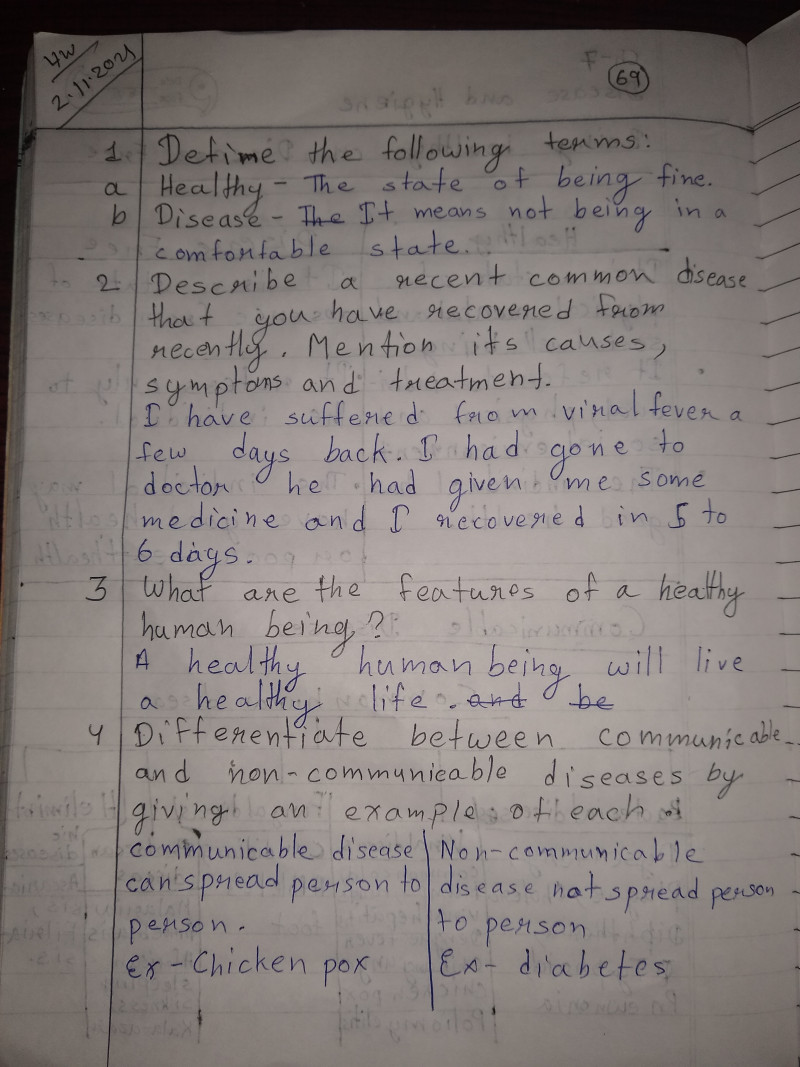 HW
2.11.2021
69
1 Define the following terms:
a Healthy - The state of being fine.
b Disease - The It means not being in a
comfortable state.
2 Describe a recent common disease
that you have recovered from
recently. Mention its causes,
symptoms and treatment.
I have suffered from viral fever a
few days back. I had gone to
doctor he had given me some
medicine and I recovered in 5 to
6 days.
3 What are the features of a healthy
human being?
A healthy human being will live
a healthy life. and be
4 Differentiate between communicable
and non-communicable diseases by
giving an example of each
communicable disease
can spread person to
person.
Ex - Chicken pox
Non-communicable
disease not spread person
to person
Ex - diabetes